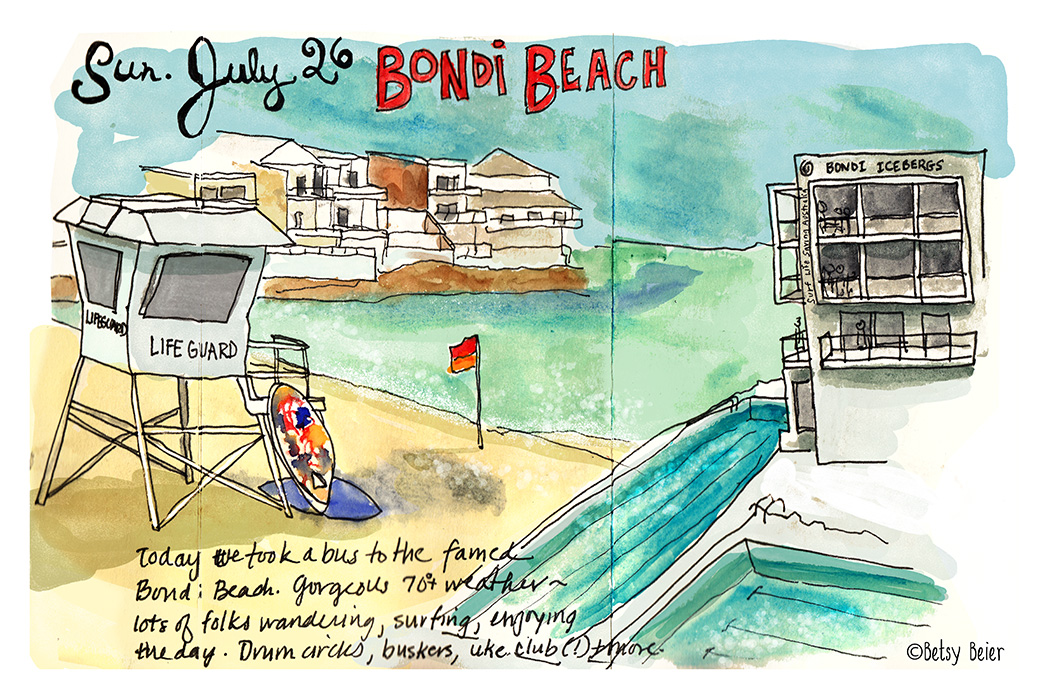 Sun. July 26 BONDi BEACH
BONDI ICEBERGS
Surf Life Saving Australia
LIFEGUARD
LIFE GUARD
Today we took a bus to the famed
Bondi Beach. Gorgeous 70°+ weather~
lots of folks wandering, surfing, enjoying
the day. Drum circles, buskers, uke club (!) + more.
©Betsy Beier